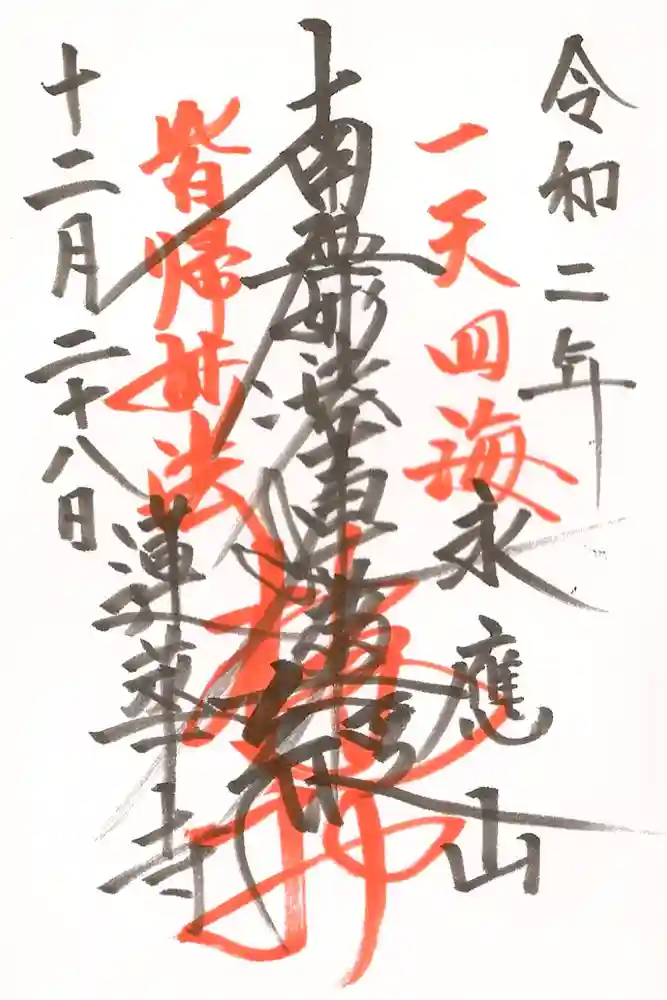 令和二年
一天四海
永應山
南無妙法蓮華経
皆帰妙法
十二月二十八日
蓮華寺